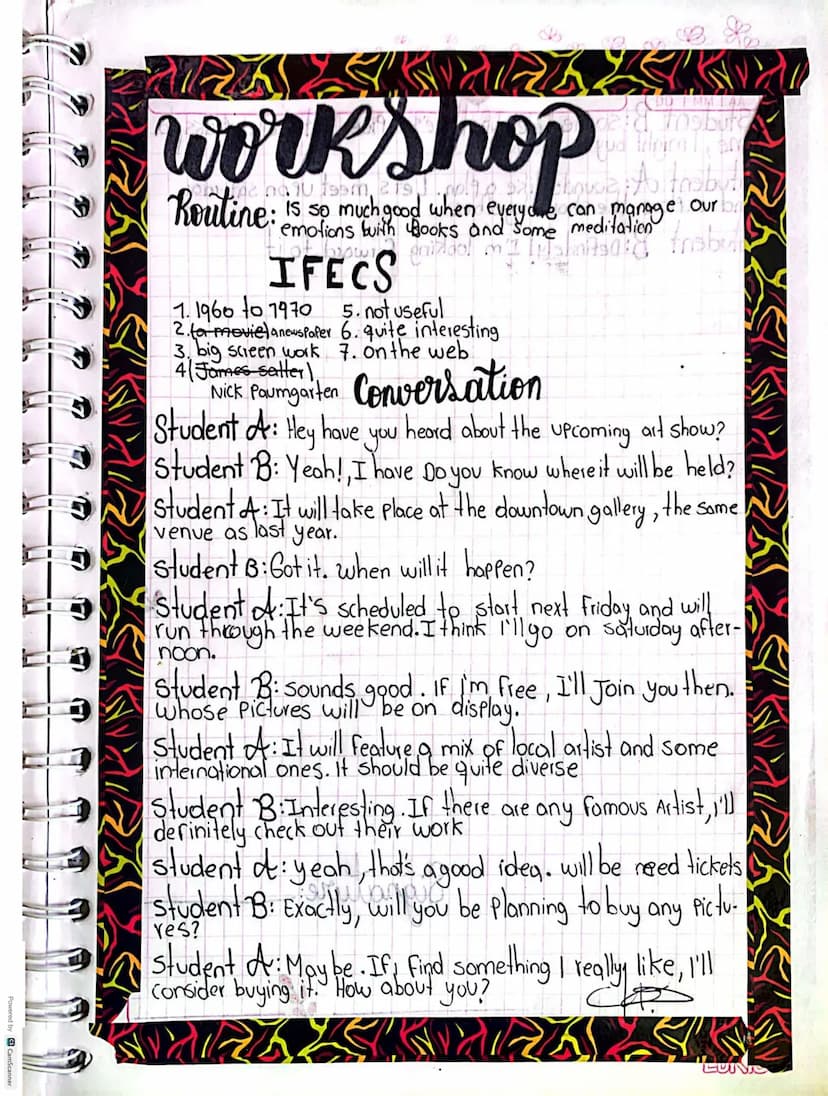 workshop
Routine: is so much good when everyone can manage our
emotions with books and some meditation
IFECS
1. 1960 to 1970 5. not useful
2. (a movie) a newspaper 6. quite interesting
3. big screen work 7. on the web
4 (James salter)
Nick Paumgarten Conversation
Student A: Hey have you heard about the upcoming art show?
Student B: Yeah!, I have Do you know where it will be held?
Student A: It will take place at the downtown gallery, the same
venue as last year.
Student B: Got it. When will it happen?
Student A: It's scheduled to start next Friday and will
run through the weekend. I think I'll go on saturday after-
noon.
Student B: Sounds good. IF I'm free, I'll Join you then.
whose pictures will be on display.
Student A: It will feature a mix of local artist and some
international ones. It should be quite diverse
Student B: Interesting. If there are any famous Artist, I'll
definitely check out their work
Student A: yeah, that's a good idea. will be need tickets
Student B: Exactly, will you be planning to buy any Pictu-
res?
Student A: Maybe. If I find something I really like, I'll
consider buying it. How about you?
Powered by CS CamScanner